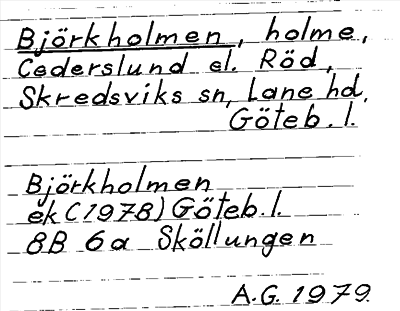 Björkholmen, holme,
Cederslund el. Röd,
Skredsviks sn, Lane hd,
Göteb. l.
Björkholmen
ek (1978) Göteb. l.
8B 6a Sköllungen
A.G. 1979.